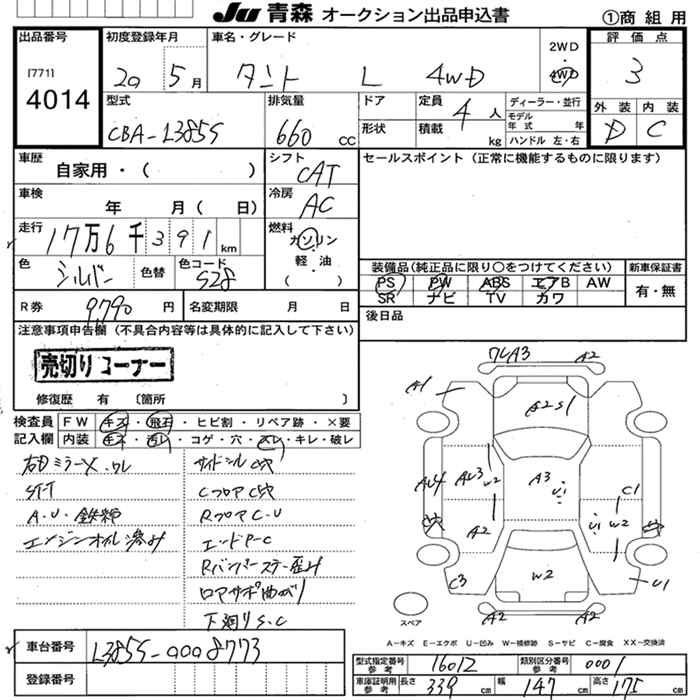 JU 青森 オークション出品申込書 ①商 組 用
出品番号 初度登録年月 車名・グレード 評価点
[771] 4014
20 5月 タント L 4WD
2WD
4WD
3
型式 排気量 ドア 定員 4人 ディーラー・並行 外装 内装
CBA-L385S 660 cc 形状 積載 kg モデル年式 年 D C
ハンドル 左・右
車歴 自家用・( ) シフト CAT セールスポイント(正常に機能するものに限ります)
車検 年 月( 日) 冷房 AC
走行 17万6千391km 燃料 ガソリン
軽・油
( )
色 シルバー 色替 色コード S28 装備品(純正品に限り○をつけてください) 新車保証書
PS PW ABS エアB AW 有・無
SR ナビ TV カワ
R券 9,790 円 名変期限 月 日 後日品
注意事項申告欄(不具合内容等は具体的に記入して下さい)
売切りコーナー
修復歴 有 〔箇所 〕
検査員 FW キズ・飛石・ヒビ割・リペア跡・×要
記入欄 内装 キズ・汚レ・コゲ・穴・スレ・キレ・破レ
右ドミラーX.ワレ サイドシルC穴
ST-T CフロアC穴
A.U・鉄粉 RフロアC-U
エンジンオイル滲み エンドP-C
Rバンパーステー歪み
ロアサポ曲がり
下廻りS.C
ワレA3 A2
A1 A2S1
AU4 AU3 W2 A3 U1 C1
A2 U1 W2
C3 W2 U1
A2 A2
スペア
A-キズ E-エクボ U-凹み W-補修跡 S-サビ C-腐食 XX-交換済
車台番号 L385S-0008773
登録番号
型式指定番号参考 16012 類別区分番号参考 0001
車庫証明用参考 長さ 339 cm 幅 147 cm 高さ 175 cm